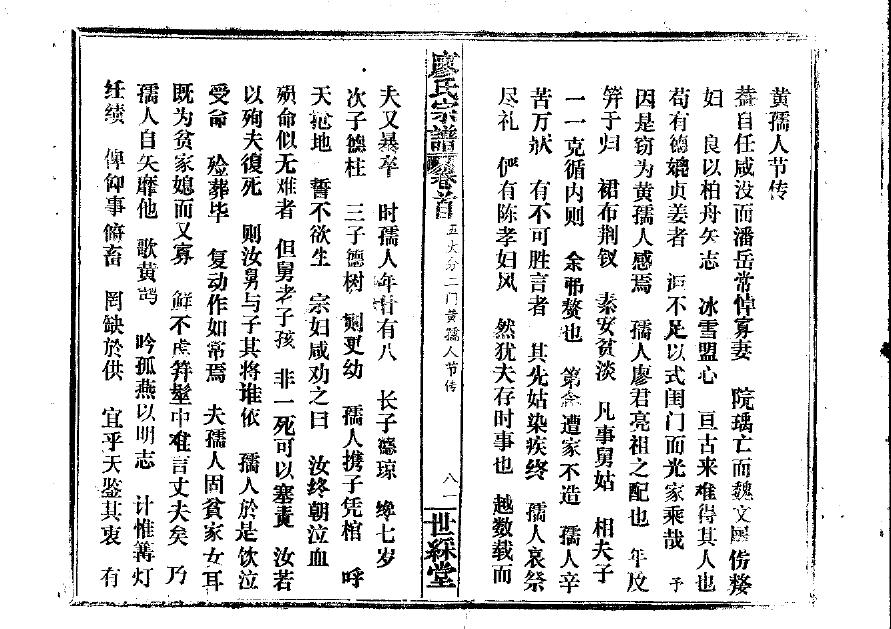 黄孺人节传
盖自任咸没而潘岳常悼寡妻 阮瑀亡而魏文因伤嫠
妇 良以柏舟矢志 冰雪盟心 亘古来难得其人也
苟有德媲贞姜者 讵不足以式闺门而光家乘哉 予
因是窃为黄孺人感焉 孺人廖君亮祖之配也 年及
笄于归 裙布荆钗 泰安贫淡 凡事舅姑 相夫子
一一克循内则 余弗赘也 第念遭家不造 孺人辛
苦万状 有不可胜言者 其先姑染疾终 孺人哀祭
尽礼 俨有陈孝妇风 然犹夫存时事也 越数载而
廖氏宗谱 卷首
五大分二门黄孺人节传
八一
世綵堂
夫又暴卒 时孺人年廿有八 长子德琼 才七岁
次子德柱 三子德树 则更幼 孺人携子凭棺 呼
天抢地 誓不欲生 宗妇咸劝之曰 汝终朝泣血
殒命似无难者 但舅老子孩 非一死可以塞责 汝若
以殉夫復死 则汝舅与子其将谁依 孺人於是饮泣
受命 殓葬毕 复动作如常焉 夫孺人固贫家女耳
既为贫家媳而又寡 鲜不虑笄髽中难言丈夫矣 乃
孺人自矢靡他 歌黄鹄 吟孤燕以明志 计惟篝灯
纴续 俾仰事俯畜 罔缺於供 宜乎天鉴其衷 有